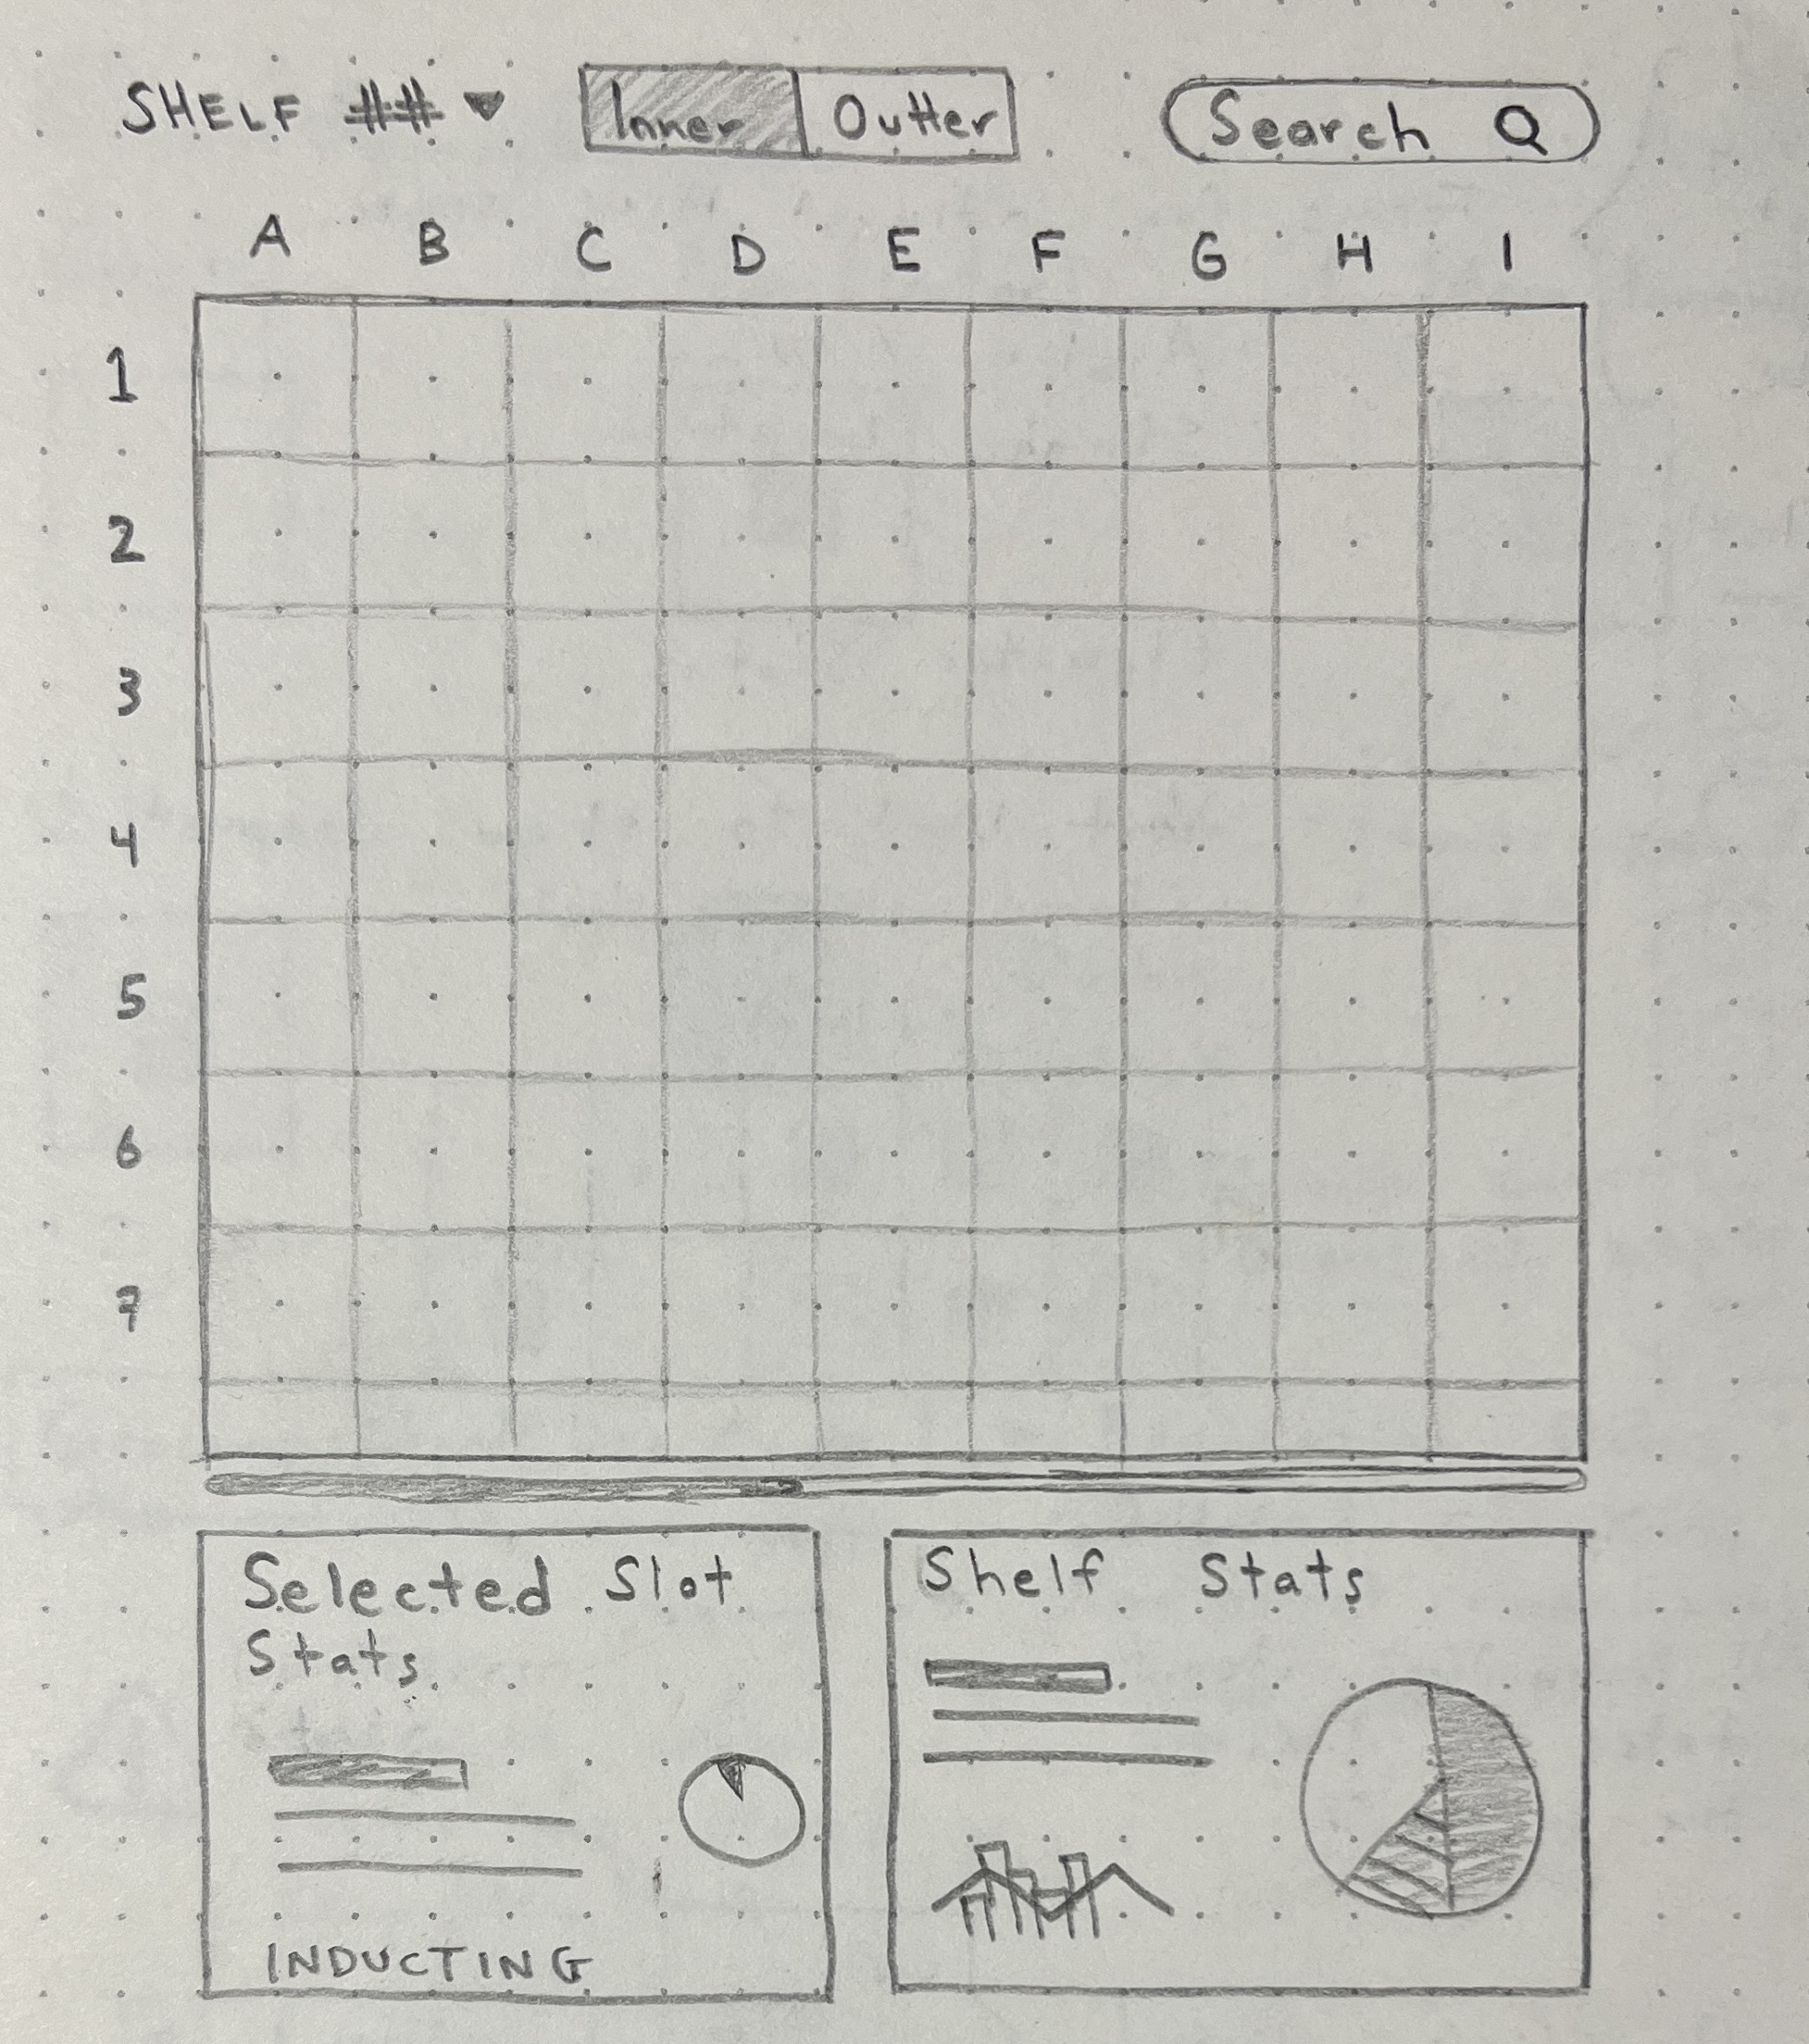 SHELF ## ▼ Inner Outter Search
A B C D E F G H I
1
2
3
4
5
6
7
Selected Slot
Stats
INDUCTING
Shelf Stats